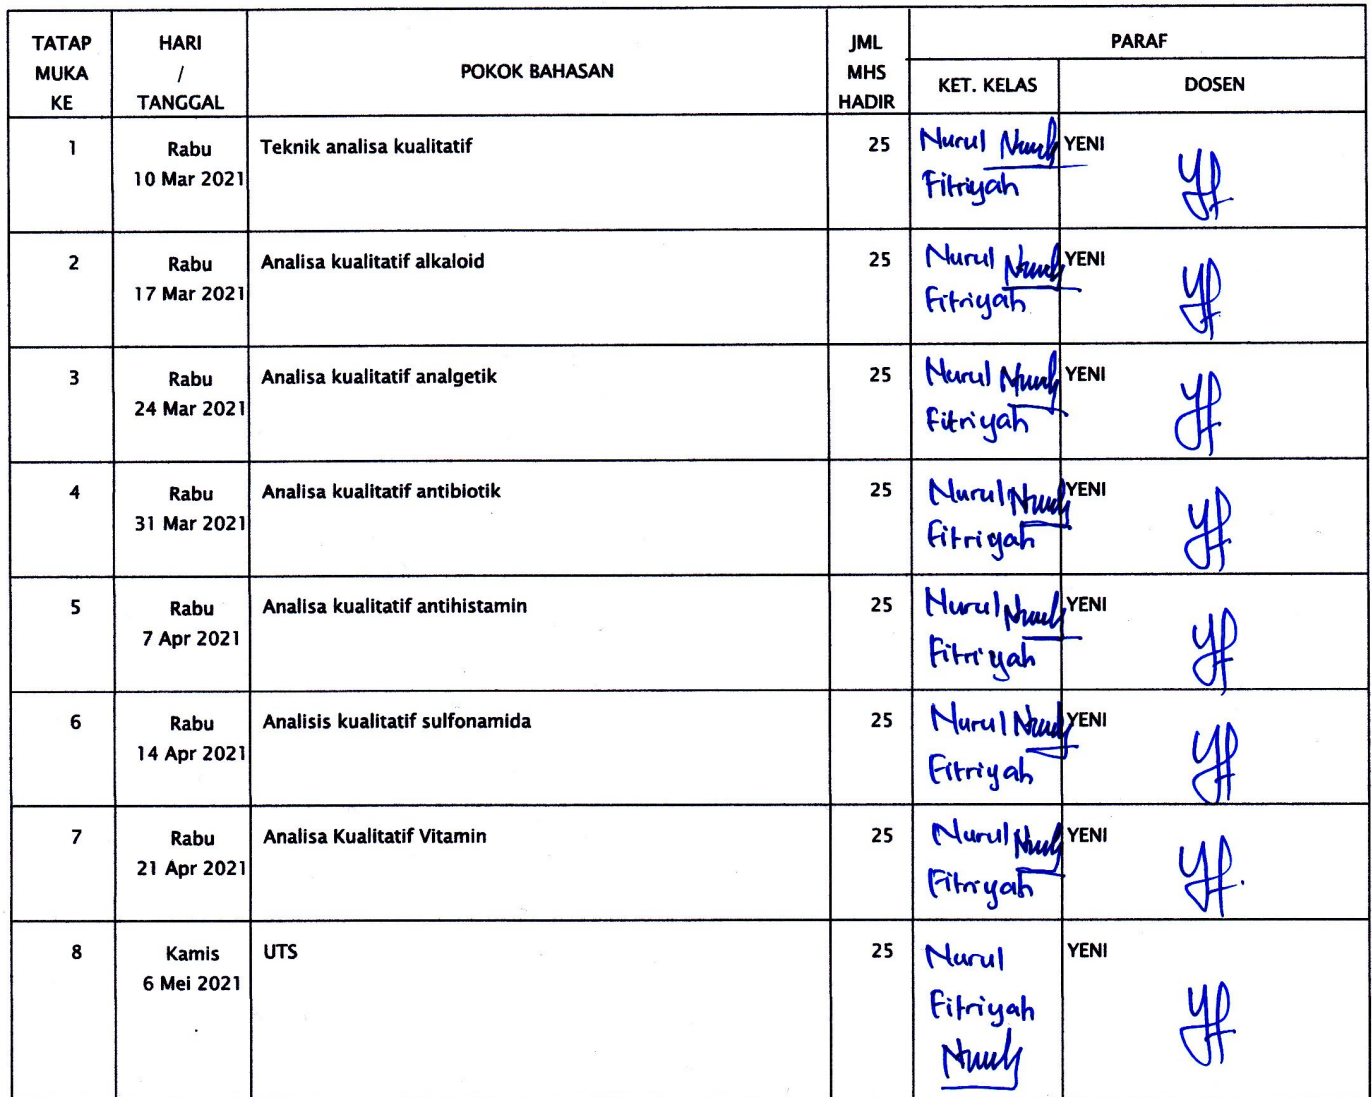 TATAP MUKA KE | HARI / TANGGAL | POKOK BAHASAN | JML MHS HADIR | PARAF
KET. KELAS | DOSEN
1 | Rabu 10 Mar 2021 | Teknik analisa kualitatif | 25 | Nurul Fitriyah | YENI
2 | Rabu 17 Mar 2021 | Analisa kualitatif alkaloid | 25 | Nurul Fitriyah | YENI
3 | Rabu 24 Mar 2021 | Analisa kualitatif analgetik | 25 | Nurul Fitriyah | YENI
4 | Rabu 31 Mar 2021 | Analisa kualitatif antibiotik | 25 | Nurul Fitriyah | YENI
5 | Rabu 7 Apr 2021 | Analisa kualitatif antihistamin | 25 | Nurul Fitriyah | YENI
6 | Rabu 14 Apr 2021 | Analisis kualitatif sulfonamida | 25 | Nurul Fitriyah | YENI
7 | Rabu 21 Apr 2021 | Analisa Kualitatif Vitamin | 25 | Nurul Fitriyah | YENI
8 | Kamis 6 Mei 2021 | UTS | 25 | Nurul Fitriyah | YENI